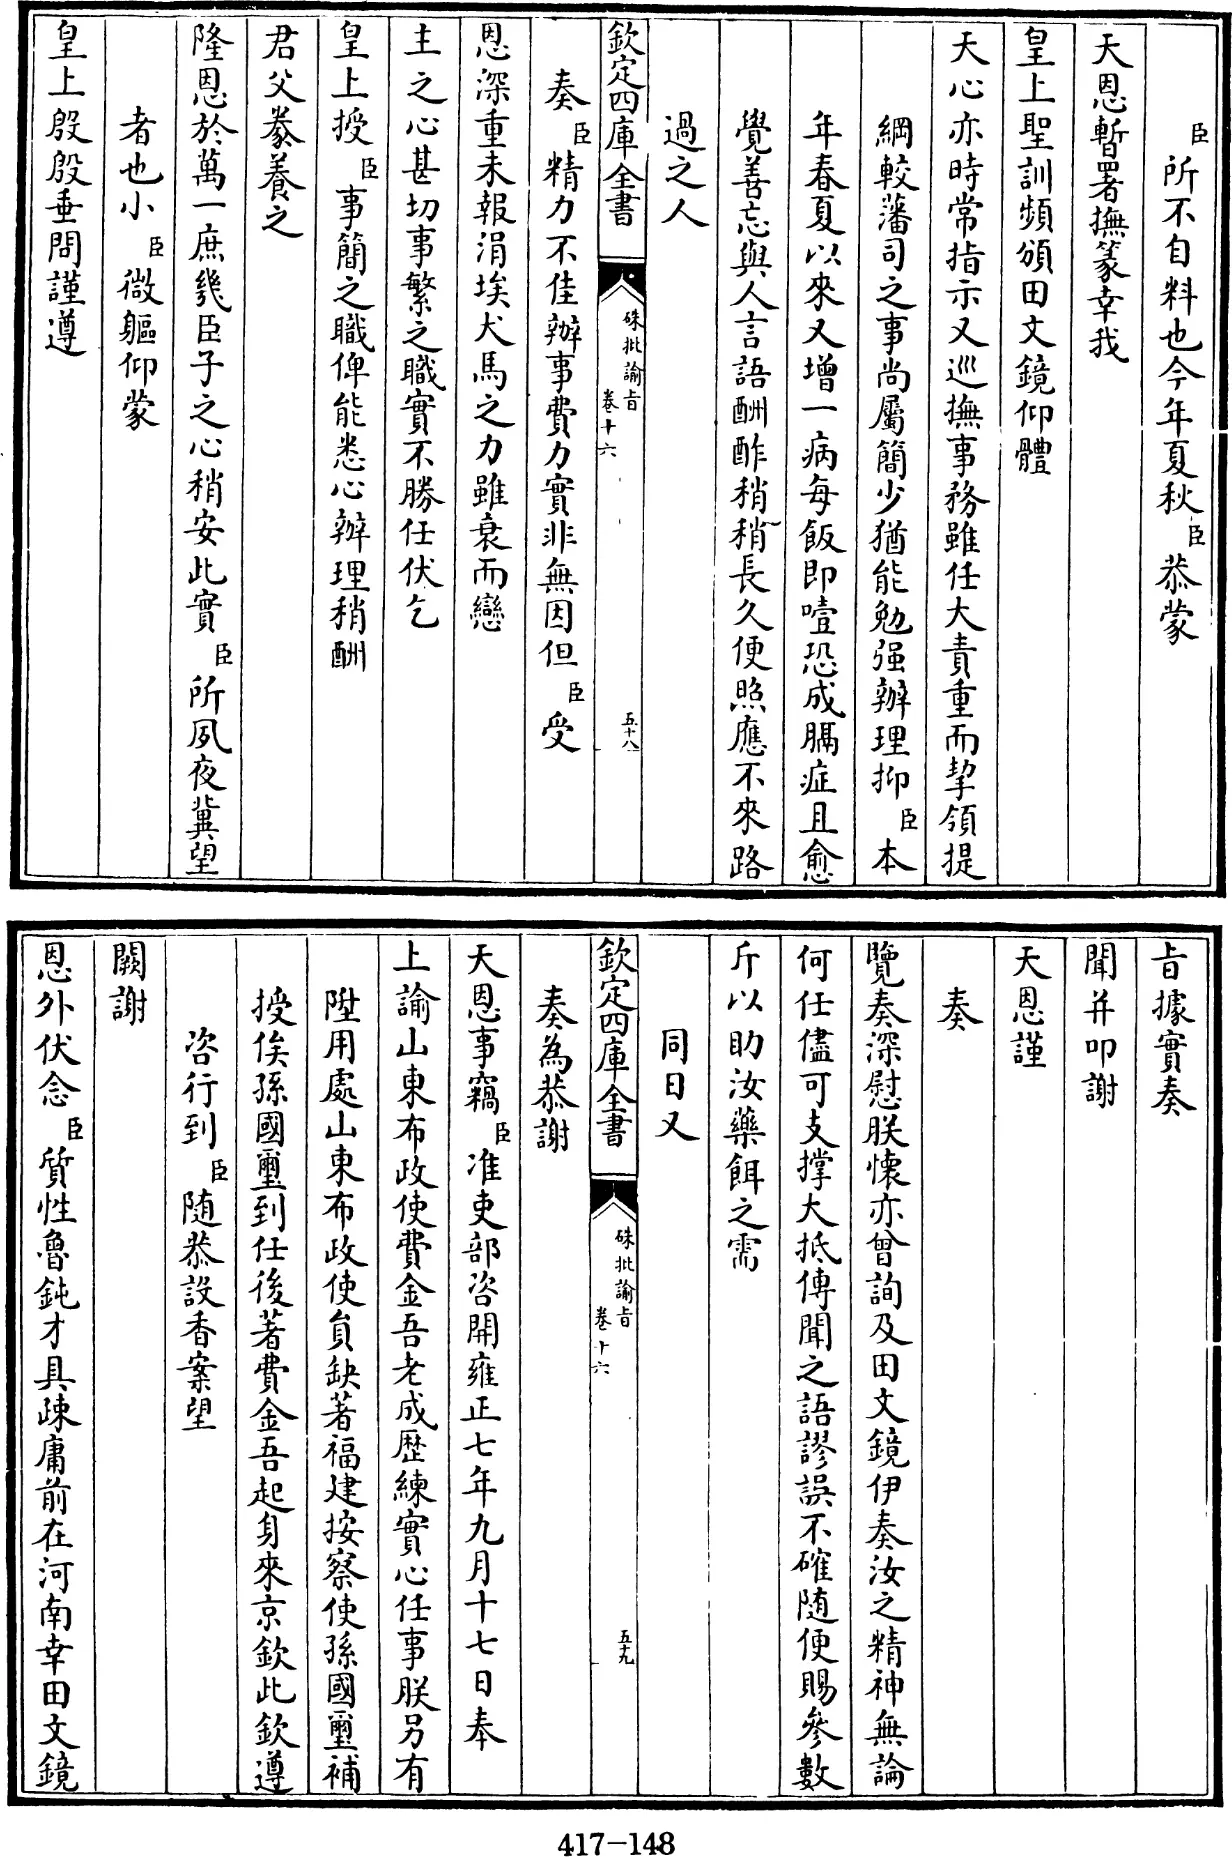 臣所不自料也今年夏秋臣恭蒙
天恩暫署撫篆幸我
皇上聖訓頻頒田文鏡仰體
天心亦時常指示又巡撫事務雖任大責重而挈領提
綱較藩司之事尚屬簡少猶能勉强辦理抑臣本
年春夏以來又增一病每飯即噎恐成膈症且愈
覺善忘與人言語酬酢稍稍長久便照應不來路
過之人
欽定四庫全書 硃批諭旨 卷十六 五十八
奏臣精力不佳辦事費力實非無因但臣受
恩深重未報涓埃犬馬之力雖衰而戀
主之心甚切事繁之職實不勝任伏乞
皇上授臣事簡之職俾能悉心辦理稍酬
君父豢養之
隆恩於萬一庶幾臣子之心稍安此實臣所夙夜冀望
者也小臣微軀仰蒙
皇上殷殷垂問謹遵
旨據實奏
聞并叩謝
天恩謹
奏
覽奏深慰朕懷亦曾詢及田文鏡伊奏汝之精神無論
何任儘可支撐大抵傳聞之語謬誤不確隨便賜參數
斤以助汝藥餌之需
同日又
欽定四庫全書 硃批諭旨 卷十六 五十九
奏為恭謝
天恩事竊臣准吏部咨開雍正七年九月十七日奉
上諭山東布政使費金吾老成歷練實心任事朕另有
陞用處山東布政使員缺著福建按察使孫國璽補
授俟孫國璽到任後著費金吾起身來京欽此欽遵
咨行到臣隨恭設香案望
闕謝
恩外伏念臣質性魯鈍才具疎庸前在河南幸田文鏡
417-148